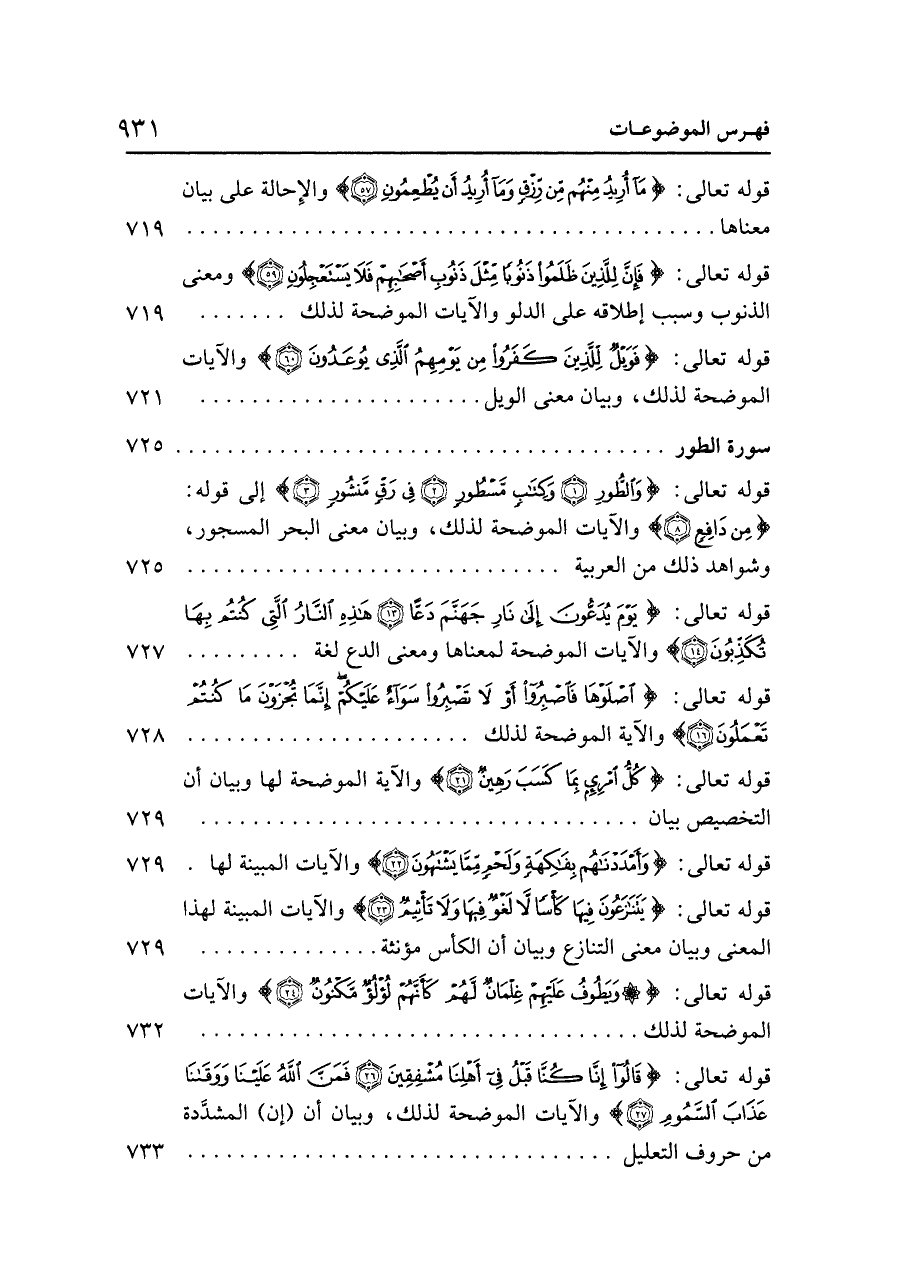 فهـرس الموضوعـات ٩٣١
قوله تعالى: ﴿ مَآ أُرِيدُ مِنْهُم مِّن رِّزْقٍ وَمَآ أُرِيدُ أَن يُطْعِمُونِ ٥٧﴾ والإحالة على بيان
معناها . . . . . . . . . . . . . . . . . . . . . . . . . . . . . . . . . . . . . . . . ٧١٩
قوله تعالى: ﴿ فَإِنَّ لِلَّذِينَ ظَلَمُوا۟ ذَنُوبًا مِّثْلَ ذَنُوبِ أَصْحَٰبِهِمْ فَلَا يَسْتَعْجِلُونِ ٥٩﴾ ومعنى
الذنوب وسبب إطلاقه على الدلو والآيات الموضحة لذلك . . . . . . . ٧١٩
قوله تعالى: ﴿ فَوَيْلٌ لِّلَّذِينَ كَفَرُوا۟ مِن يَوْمِهِمُ ٱلَّذِى يُوعَدُونَ ٦٠﴾ والآيات
الموضحة لذلك، وبيان معنى الويل . . . . . . . . . . . . . . . . . . . . . . ٧٢١
سورة الطور . . . . . . . . . . . . . . . . . . . . . . . . . . . . . . . . . . . . . . ٧٢٥
قوله تعالى: ﴿ وَٱلطُّورِ ١ وَكِتَٰبٍ مَّسْطُورٍ ٢ فِى رَقٍّ مَّنشُورٍ ٣﴾ إلى قوله:
﴿ مِن دَافِعٍ ٨﴾ والآيات الموضحة لذلك، وبيان معنى البحر المسجور،
وشواهد ذلك من العربية . . . . . . . . . . . . . . . . . . . . . . . . . . . . . ٧٢٥
قوله تعالى: ﴿ يَوْمَ يُدَعُّونَ إِلَىٰ نَارِ جَهَنَّمَ دَعًّا ١٣ هَٰذِهِ ٱلنَّارُ ٱلَّتِى كُنتُم بِهَا
تُكَذِّبُونَ ١٤﴾ والآيات الموضحة لمعناها ومعنى الدع لغة . . . . . . . . . ٧٢٧
قوله تعالى: ﴿ ٱصْلَوْهَا فَٱصْبِرُوٓا۟ أَوْ لَا تَصْبِرُوا۟ سَوَآءٌ عَلَيْكُمْ ۖ إِنَّمَا تُجْزَوْنَ مَا كُنتُمْ
تَعْمَلُونَ ١٦﴾ والآية الموضحة لذلك . . . . . . . . . . . . . . . . . . . . . . ٧٢٨
قوله تعالى: ﴿ كُلُّ ٱمْرِئٍۭ بِمَا كَسَبَ رَهِينٌ ٢١﴾ والآية الموضحة لها وبيان أن
التخصيص بيان . . . . . . . . . . . . . . . . . . . . . . . . . . . . . . . . . . ٧٢٩
قوله تعالى: ﴿ وَأَمْدَدْنَٰهُم بِفَٰكِهَةٍ وَلَحْمٍ مِّمَّا يَشْتَهُونَ ٢٢﴾ والآيات المبينة لها . ٧٢٩
قوله تعالى: ﴿ يَتَنَٰزَعُونَ فِيهَا كَأْسًا لَّا لَغْوٌ فِيهَا وَلَا تَأْثِيمٌ ٢٣﴾ والآيات المبينة لهذا
المعنى وبيان معنى التنازع وبيان أن الكأس مؤنثة . . . . . . . . . . . . . . ٧٢٩
قوله تعالى: ﴿ ۞ وَيَطُوفُ عَلَيْهِمْ غِلْمَانٌ لَّهُمْ كَأَنَّهُمْ لُؤْلُؤٌ مَّكْنُونٌ ٢٤﴾ والآيات
الموضحة لذلك . . . . . . . . . . . . . . . . . . . . . . . . . . . . . . . . . . ٧٣٢
قوله تعالى: ﴿ قَالُوٓا۟ إِنَّا كُنَّا قَبْلُ فِىٓ أَهْلِنَا مُشْفِقِينَ ٢٦ فَمَنَّ ٱللَّهُ عَلَيْنَا وَوَقَىٰنَا
عَذَابَ ٱلسَّمُومِ ٢٧﴾ والآيات الموضحة لذلك، وبيان أن (إن) المشدَّدة
من حروف التعليل . . . . . . . . . . . . . . . . . . . . . . . . . . . . . . . . . ٧٣٣